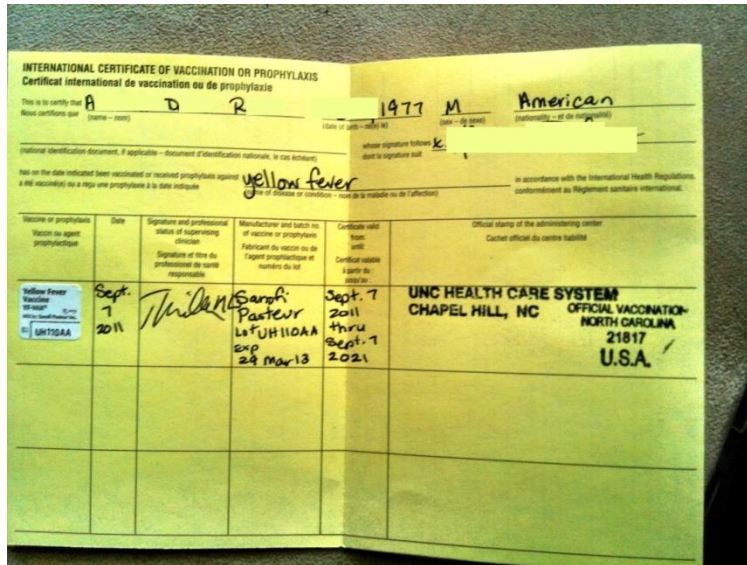 INTERNATIONAL CERTIFICATE OF VACCINATION OR PROPHYLAXIS
Certificat international de vaccination ou de prophylaxie
This is to certify that A D R 1977 M American
Nous certifions que (name – nom) (date of birth – né(e) le) (sex – de sexe) (nationality – et de nationalité)
whose signature follows
(national identification document, if applicable – document d'identification nationale, le cas échéant) dont la signature suit
has on the date indicated been vaccinated or received prophylaxis against yellow fever in accordance with the International Health Regulations.
a été vacciné(e) ou a reçu une prophylaxie à la date indiquée of disease or condition – nom de la maladie ou de l'affection) conformément au Règlement sanitaire international.
Vaccine or prophylaxis
Vaccin ou agent
prophylactique
Date
Signature and professional
status of supervising
clinician
Signature et titre du
professionnel de santé
responsable
Manufacturer and batch no.
of vaccine or prophylaxis
Fabricant du vaccin ou de
l'agent prophylactique et
numéro du lot
Certificate valid
from:
until:
Certificat valable
à partir du :
jusqu'au :
Official stamp of the administering center
Cachet officiel du centre habilité
Yellow Fever
Vaccine
UH110AA
Sept.
7
2011
Sanofi
Pasteur
Lot UH110AA
Exp
29 Mar 13
Sept. 7
2011
thru
Sept. 7
2021
UNC HEALTH CARE SYSTEM
CHAPEL HILL, NC
OFFICIAL VACCINATION
NORTH CAROLINA
21817
U.S.A.